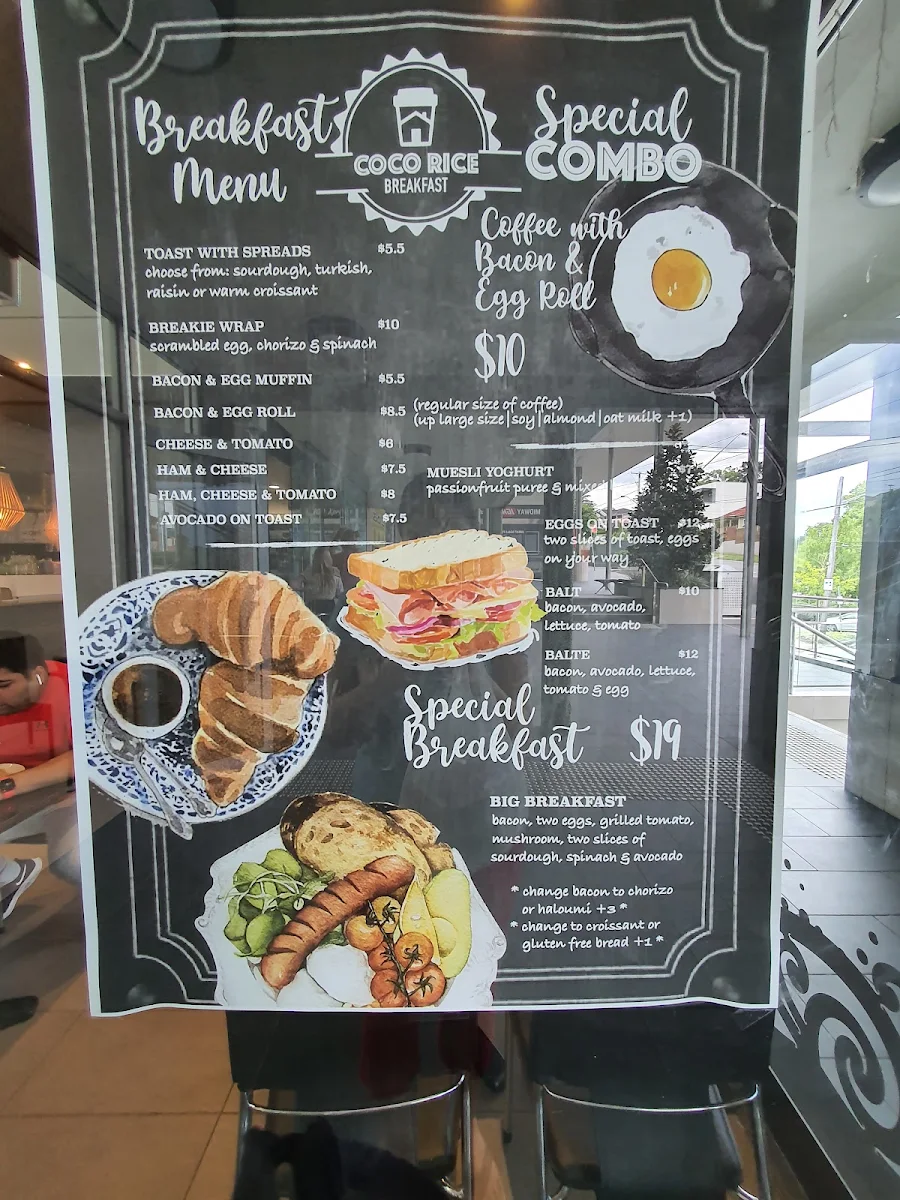 Breakfast
Menu
COCO RICE
BREAKFAST
Special
COMBO
Coffee with
Bacon &
Egg Roll
$10
(regular size of coffee)
(up large size|soy|almond|oat milk +1)
TOAST WITH SPREADS $5.5
choose from: sourdough, turkish,
raisin or warm croissant
BREAKIE WRAP $10
scrambled egg, chorizo & spinach
BACON & EGG MUFFIN $5.5
BACON & EGG ROLL $8.5
CHEESE & TOMATO $6
HAM & CHEESE $7.5
HAM, CHEESE & TOMATO $8
AVOCADO ON TOAST $7.5
MUESLI YOGHURT
passionfruit puree & mixed
EGGS ON TOAST $12
two slices of toast, eggs
on your way
BALT $10
bacon, avocado,
lettuce, tomato
BALTE $12
bacon, avocado, lettuce,
tomato & egg
Special
Breakfast $19
BIG BREAKFAST
bacon, two eggs, grilled tomato,
mushroom, two slices of
sourdough, spinach & avocado
* change bacon to chorizo
or haloumi +3 *
* change to croissant or
gluten free bread +1 *